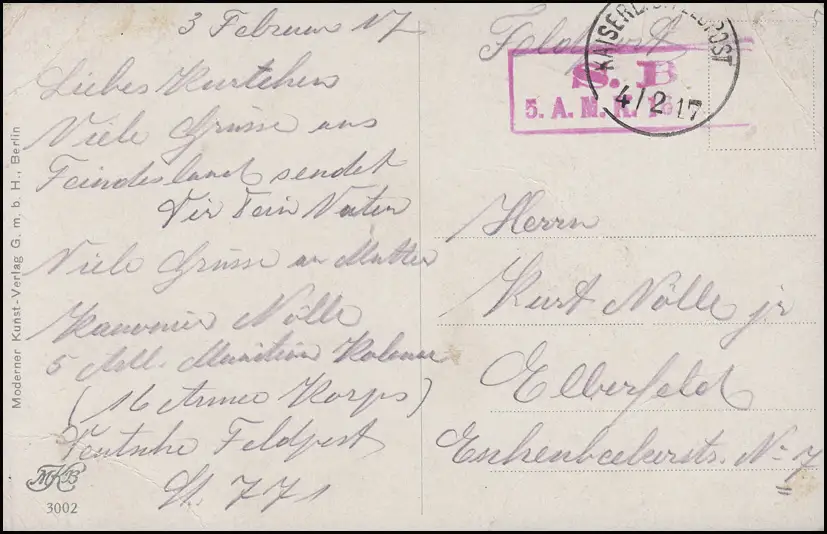 3 Februar 17
Liebes Kurtchen
Viele Grüsse aus
Feindesland sendet
Dir Dein Vater
Viele Grüsse an Mutter
Kanonier Nölle
5 Art. Munition Kolonne
(16 Armee Korps)
Deutsche Feldpost
St. 771
Moderner Kunst-Verlag G. m. b. H., Berlin
MKB
3002
Feldpost
KAISERL. D. FELDPOST
4/2 17
S. B
5. A. M. K. 16
Herrn
Kurt Nölle jr
Elberfeld
Eschenbeekerstr. No 7